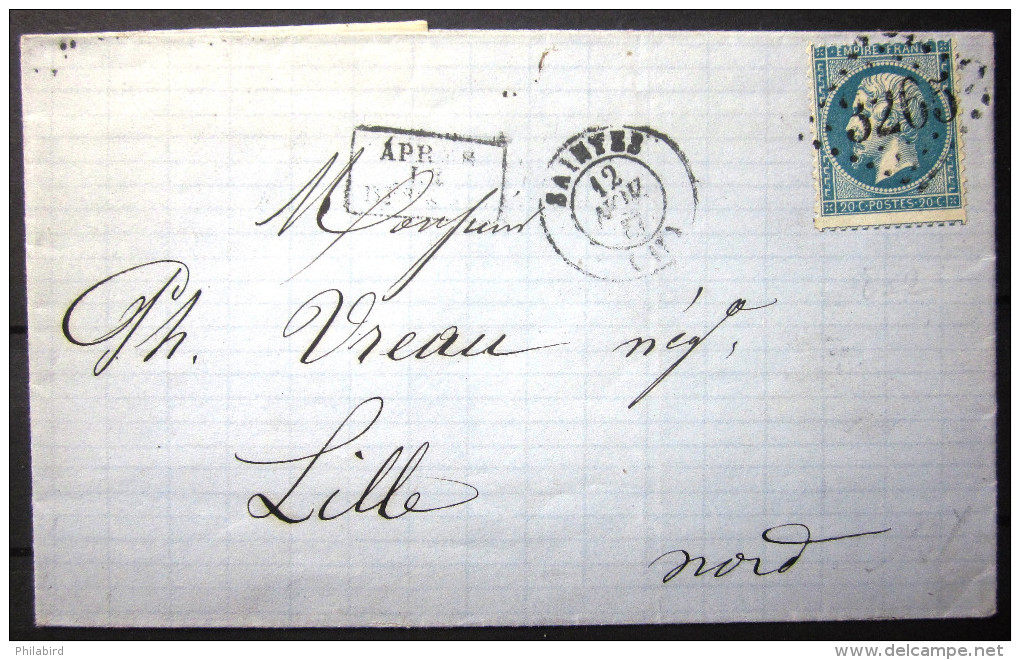 EMPIRE FRANC
3265
20 C-POSTES-20 C
APR S
LE
SAINTES
12
(16)
Monsieur
Ph. Vreau négt,
Lille
nord
Philabird
delcampe.net